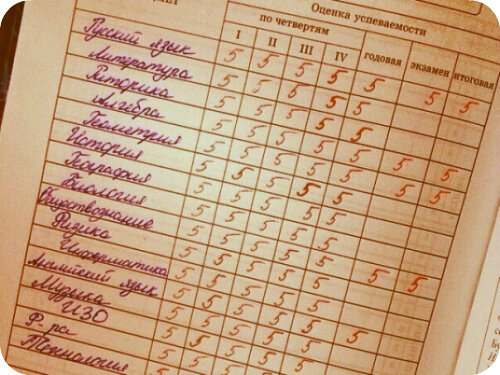 Оценка успеваемости
по четвертям
I II III IV годовая экзамен итоговая
Русский язык 5 5 5 5 5 5 5
Литература 5 5 5 5 5
Риторика 5 5 5 5 5
Алгебра 5 5 5 5 5 5 5
Геометрия 5 5 5 5 5 5
История 5 5 5 5
География 5 5 5 5
Биология 5 5 5 5
Обществознание 5 5 5 5
Физика 5 5 5 5 5 5
Информатика 5 5 5 5
Английский язык 5 5 5 5
Музыка 5 5 5 5
ИЗО 5 5 5 5
Ф-ра 5 5 5 5
Технология 5 5 5 5